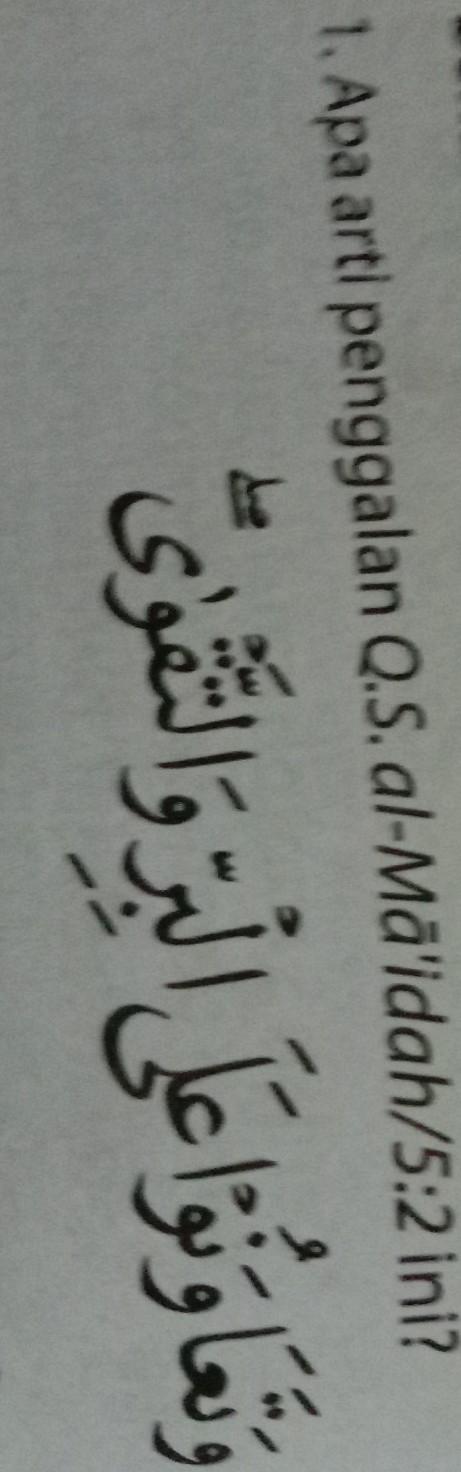 1. Apa arti penggalan Q.S. al-Mā'idah/5:2 ini?
وَتَعَاوَنُوْا عَلَى الْبِرِّ وَالتَّقْوٰىۖ